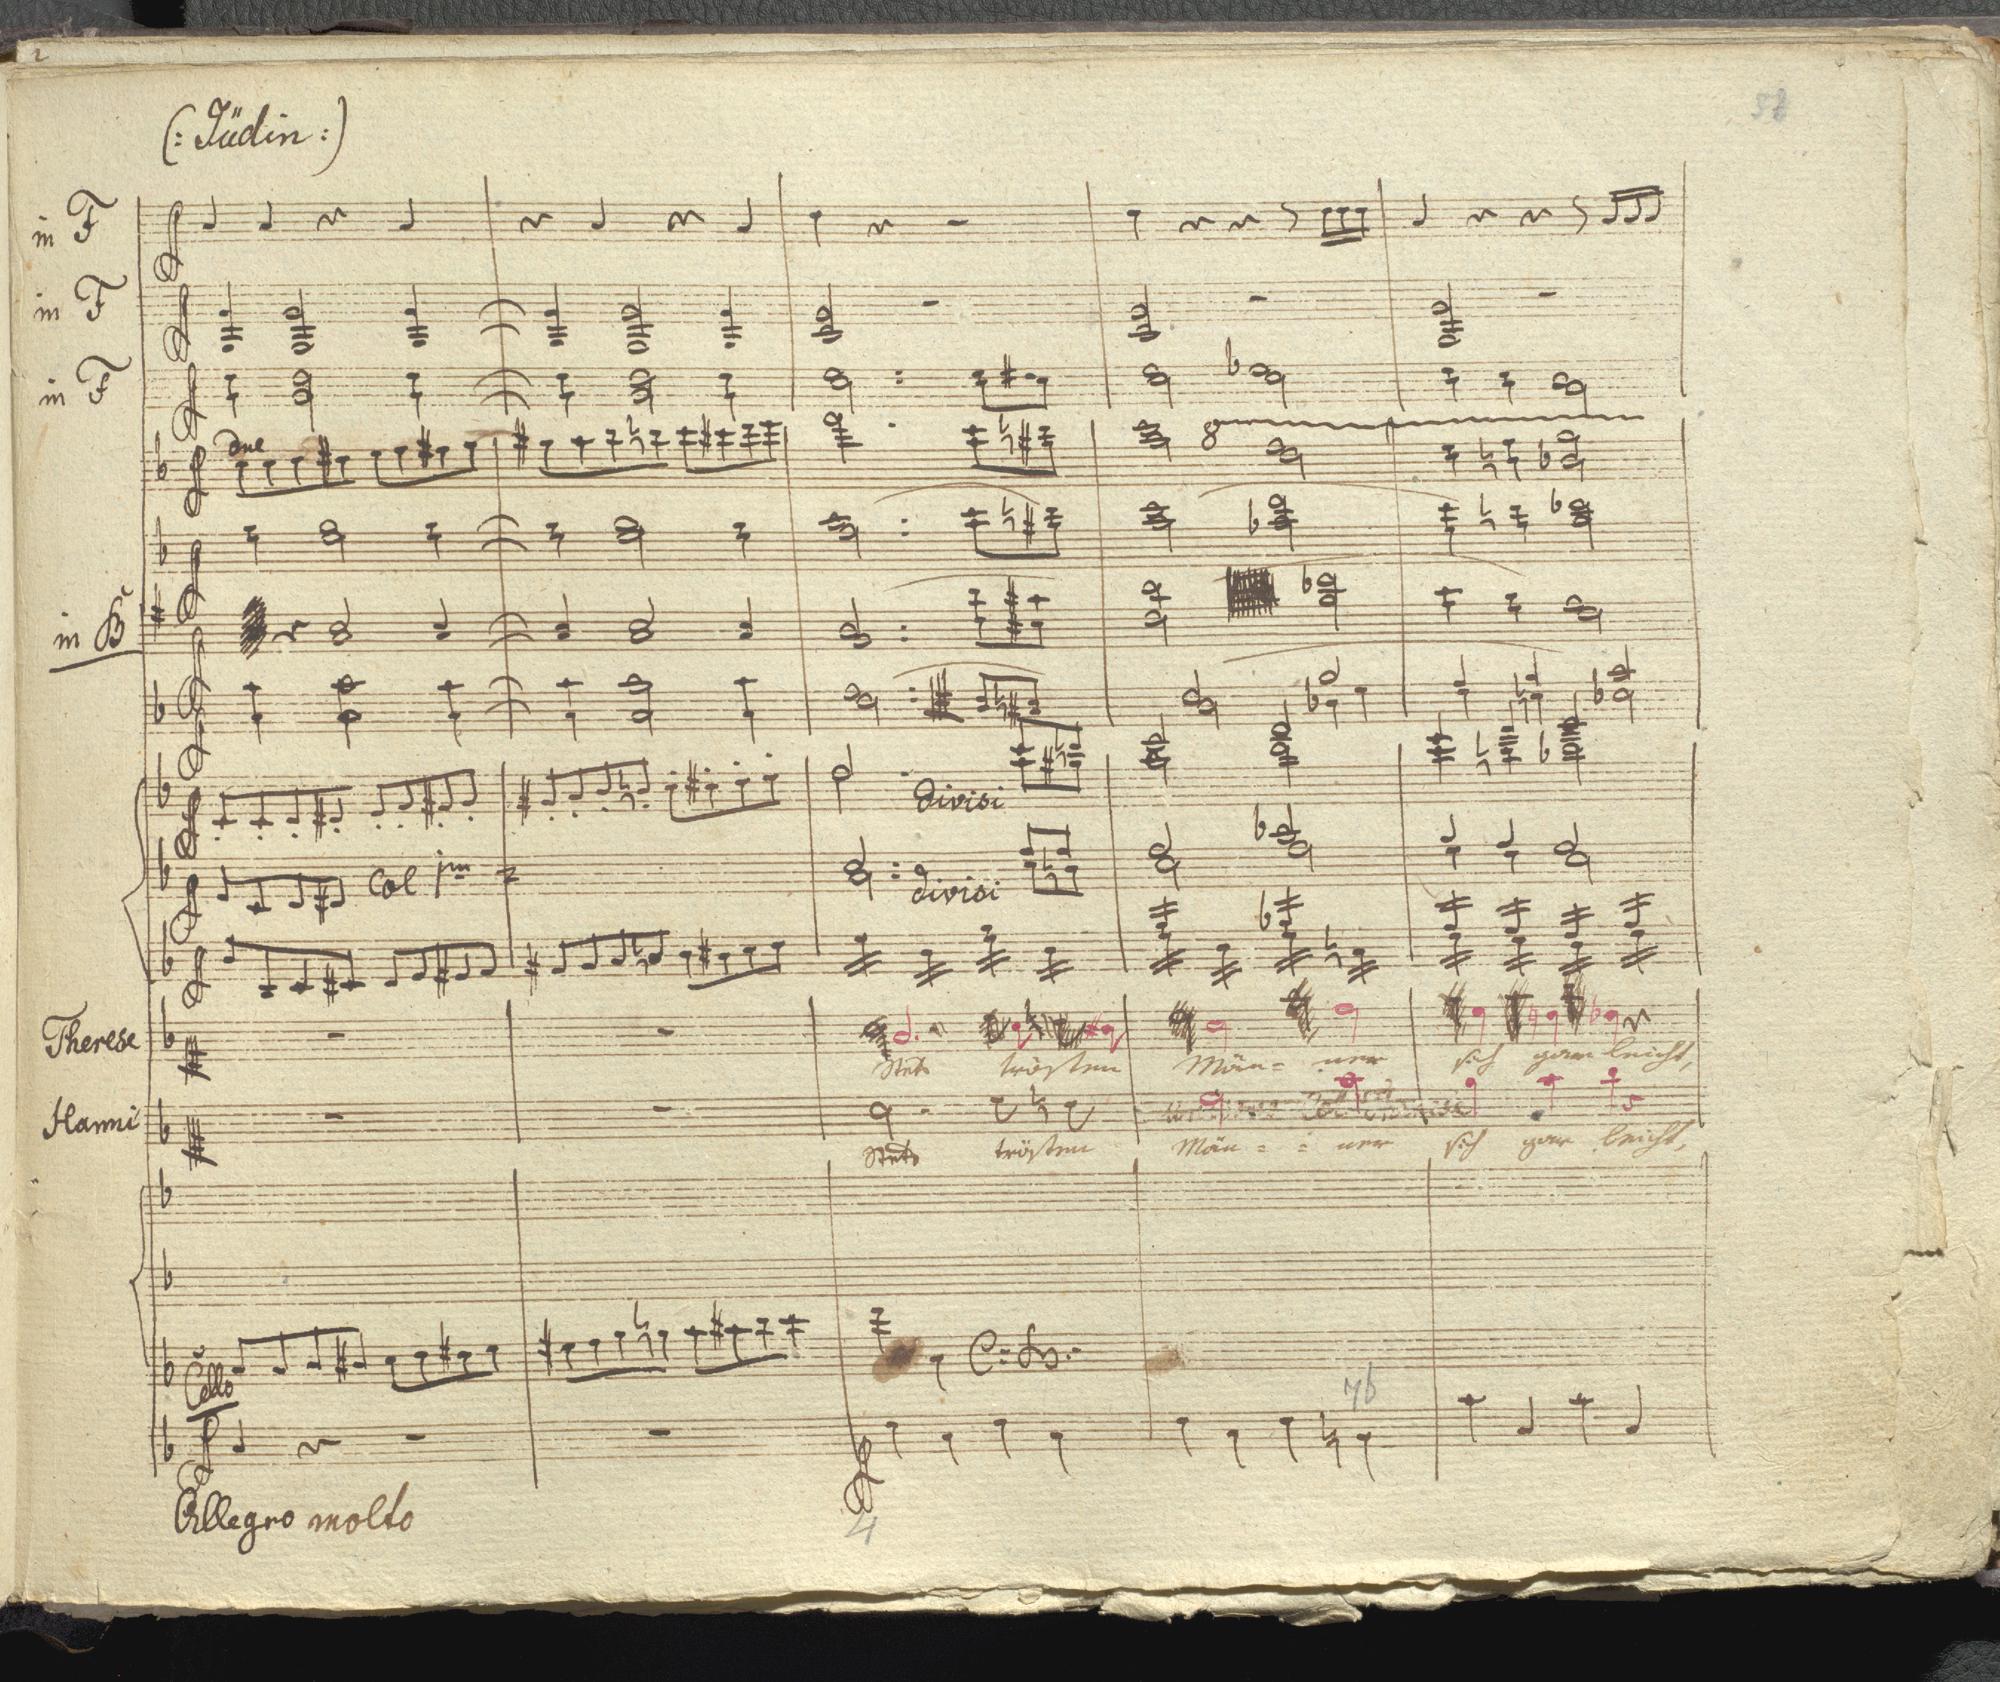 2
58
(: Jüdin :)
in F
in F
in F
due
8
in B
divisi
Col pmo
divisi
Therese
Stets trösten Män= ner sich gar leicht,
Hanni
Stets trösten Män= = ner sich gar leicht,
Cello
C: B:
7b
Allegro molto
4